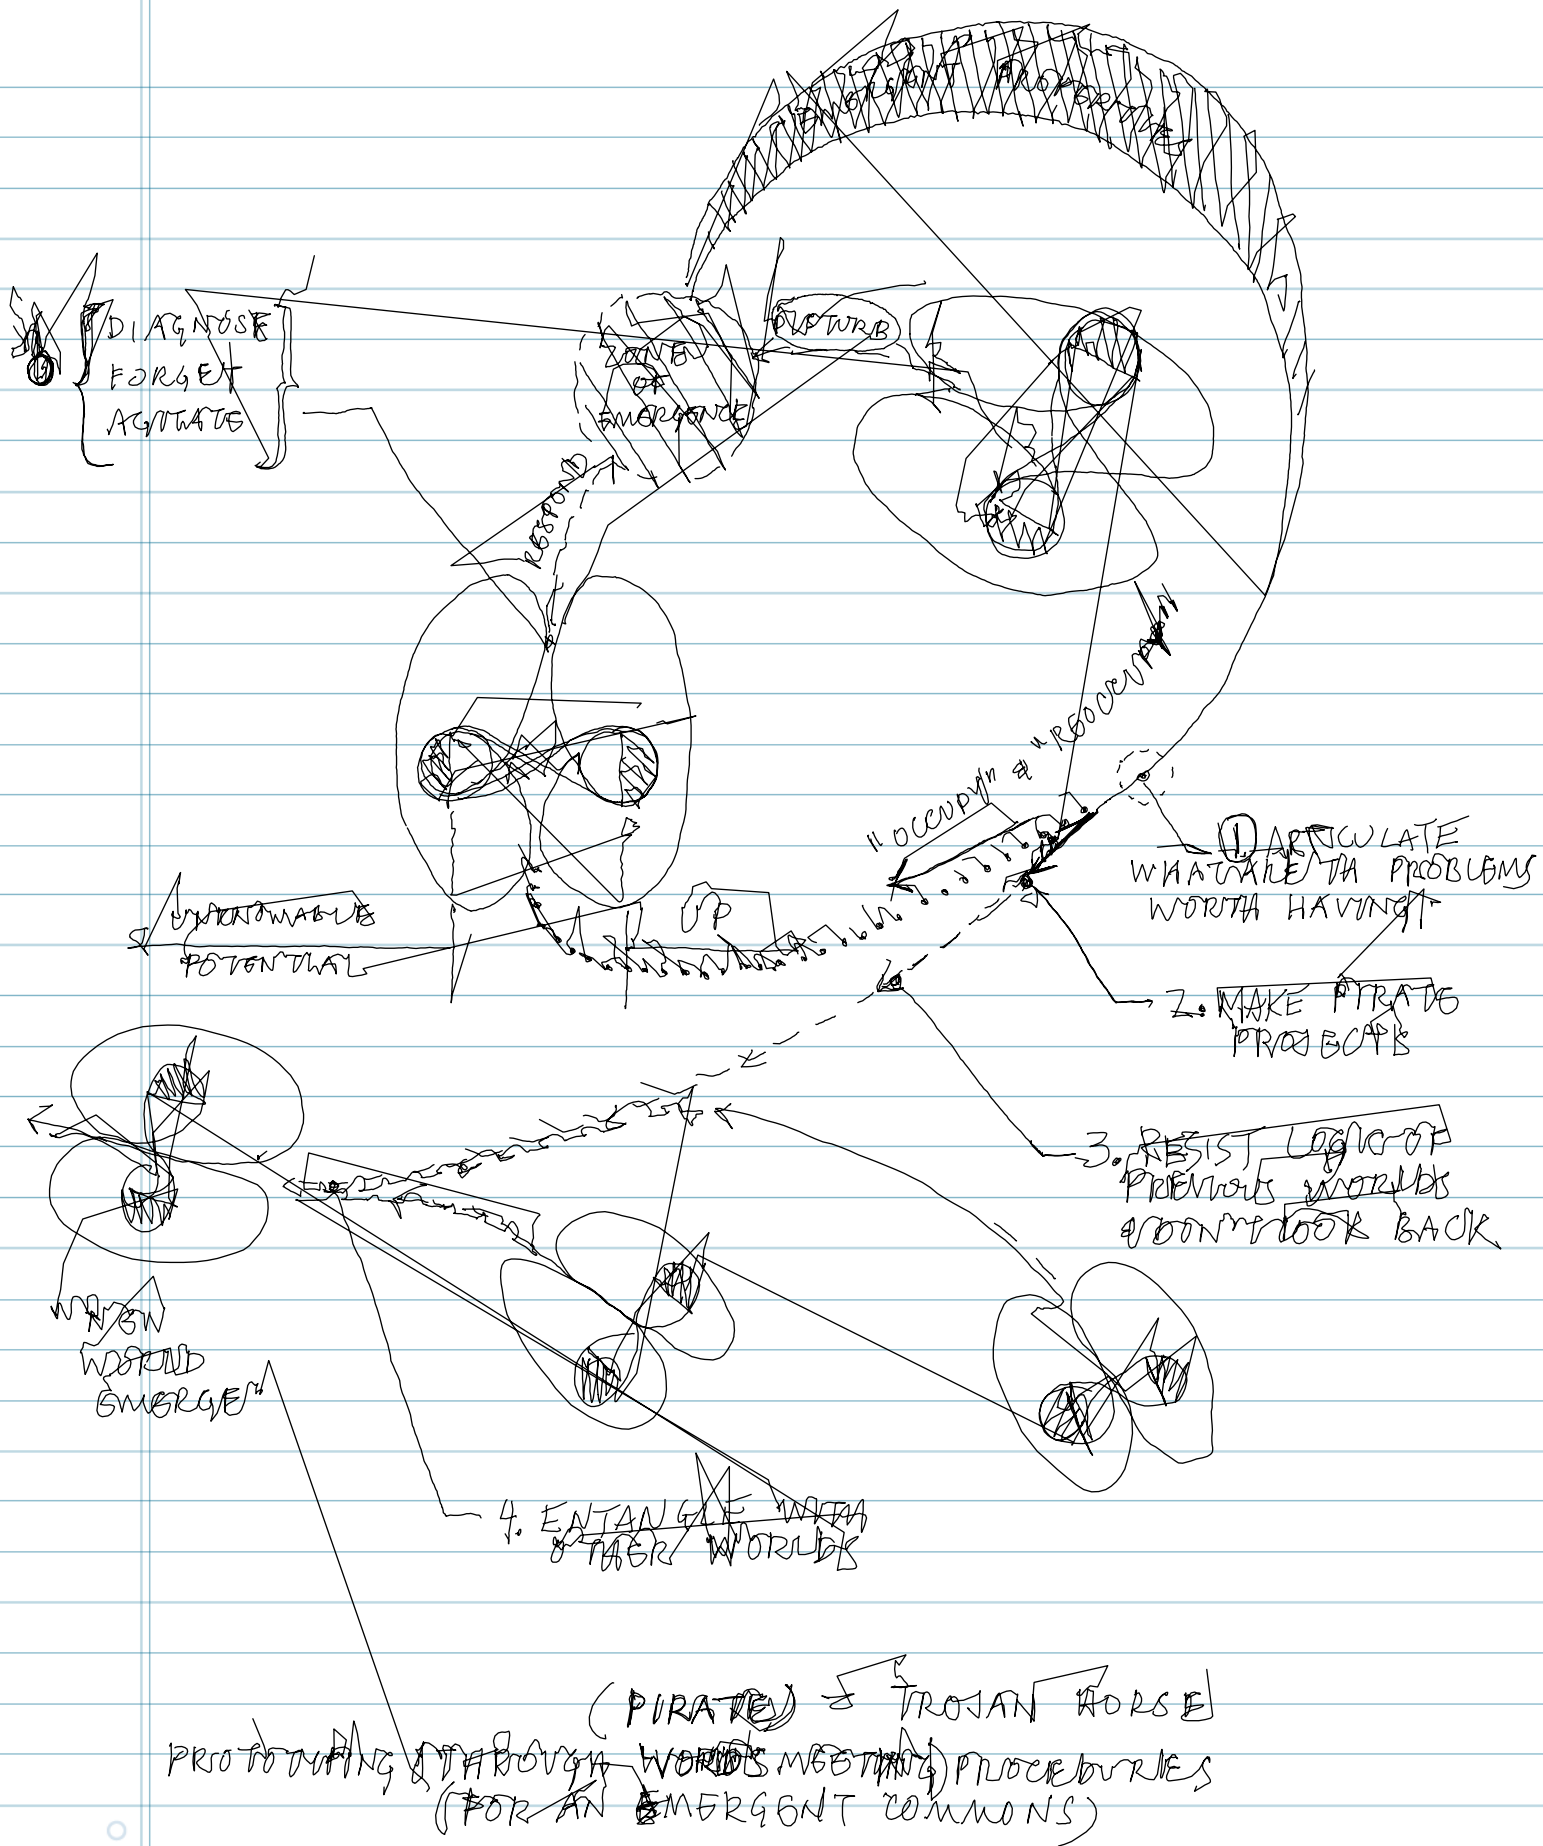 EMERGENT PROPERTIES
DIAGNOSE
FORGET
AGITATE
ZONE
OF
EMERGENCE
DISTURB
RESPOND
"OCCUPY" & "REOCCUPY"
UNKNOWABLE
POTENTIAL
UP
1 ARTICULATE
WHAT ARE TH PROBLEMS
WORTH HAVING
2. MAKE PIRATE
PROJECTS
3. RESIST LOGIC OF
PREVIOUS WORLDS
DON'T LOOK BACK
NEW
WORLD
EMERGE
4. ENTANGLE WITH
OTHER WORLDS
(PIRATE) TROJAN HORSE
PROTOTYPING (THROUGH WORLDS MEETING) PROCEDURES
(FOR AN EMERGENT COMMONS)